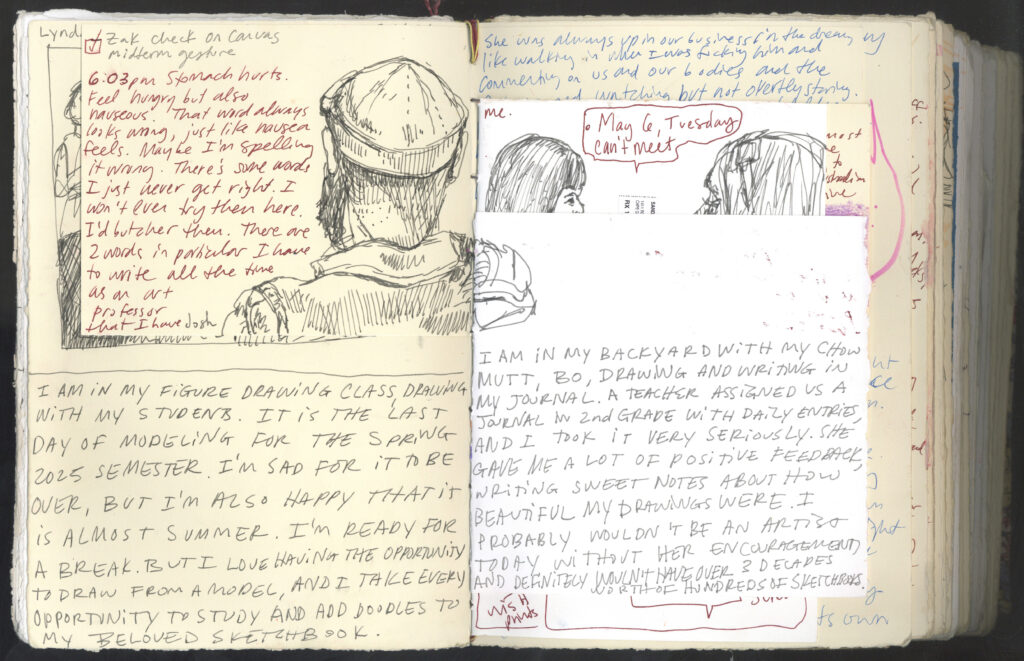 Lynd
Zak check on Canvas
midterm gesture
6:03pm Stomach hurts.
Feel hungry but also
nauseous. That word always
looks wrong, just like nausea
feels. Maybe I'm spelling
it wrong. There's some words
I just never get right. I
won't even try them here.
I'd butcher them. There are
2 words in particular I have
to write all the time
as an art
professor
that I have dosh
I AM IN MY FIGURE DRAWING CLASS, DRAWING
WITH MY STUDENTS. IT IS THE LAST
DAY OF MODELING FOR THE SPRING
2025 SEMESTER. I'M SAD FOR IT TO BE
OVER, BUT I'M ALSO HAPPY THAT IT
IS ALMOST SUMMER. I'M READY FOR
A BREAK. BUT I LOVE HAVING THE OPPORTUNITY
TO DRAW FROM A MODEL, AND I TAKE EVERY
OPPORTUNITY TO STUDY AND ADD DOODLES TO
MY BELOVED SKETCHBOOK.
She was always up in our business in the dream
like walking in when I was fucking him and
commenting on us and our bodies and the
watching but not overtly staring.
me.
May 6, Tuesday
can't meet
I AM IN MY BACKYARD WITH MY CHOW
MUTT, BO, DRAWING AND WRITING IN
MY JOURNAL. A TEACHER ASSIGNED US A
JOURNAL IN 2nd GRADE WITH DAILY ENTRIES,
AND I TOOK IT VERY SERIOUSLY. SHE
GAVE ME A LOT OF POSITIVE FEEDBACK,
WRITING SWEET NOTES ABOUT HOW
BEAUTIFUL MY DRAWINGS WERE. I
PROBABLY WOULDN'T BE AN ARTIST
TODAY WITHOUT HER ENCOURAGEMENT,
AND DEFINITELY WOULDN'T HAVE OVER 3 DECADES
WORTH OF HUNDREDS OF SKETCHBOOKS.
wish
prints
ts own